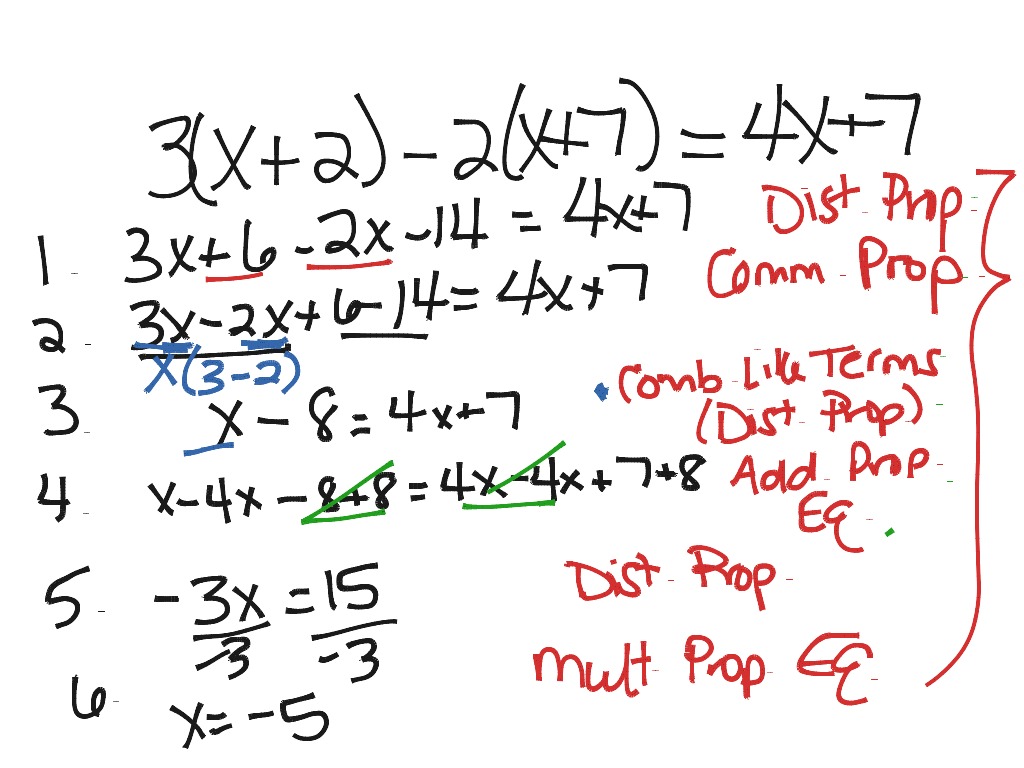 3(x+2) - 2(x+7) = 4x+7
1 3x+6 -2x -14 = 4x+7 Dist Prop
2 3x-2x+6-14 = 4x+7 Comm Prop
x(3-2)
3 x - 8 = 4x+7 Comb Like Terms
(Dist Prop)
4 x-4x-8+8 = 4x-4x+7+8 Add Prop
EQ
5 -3x = 15 Dist Prop
-3 -3
6 x = -5 Mult Prop EQ